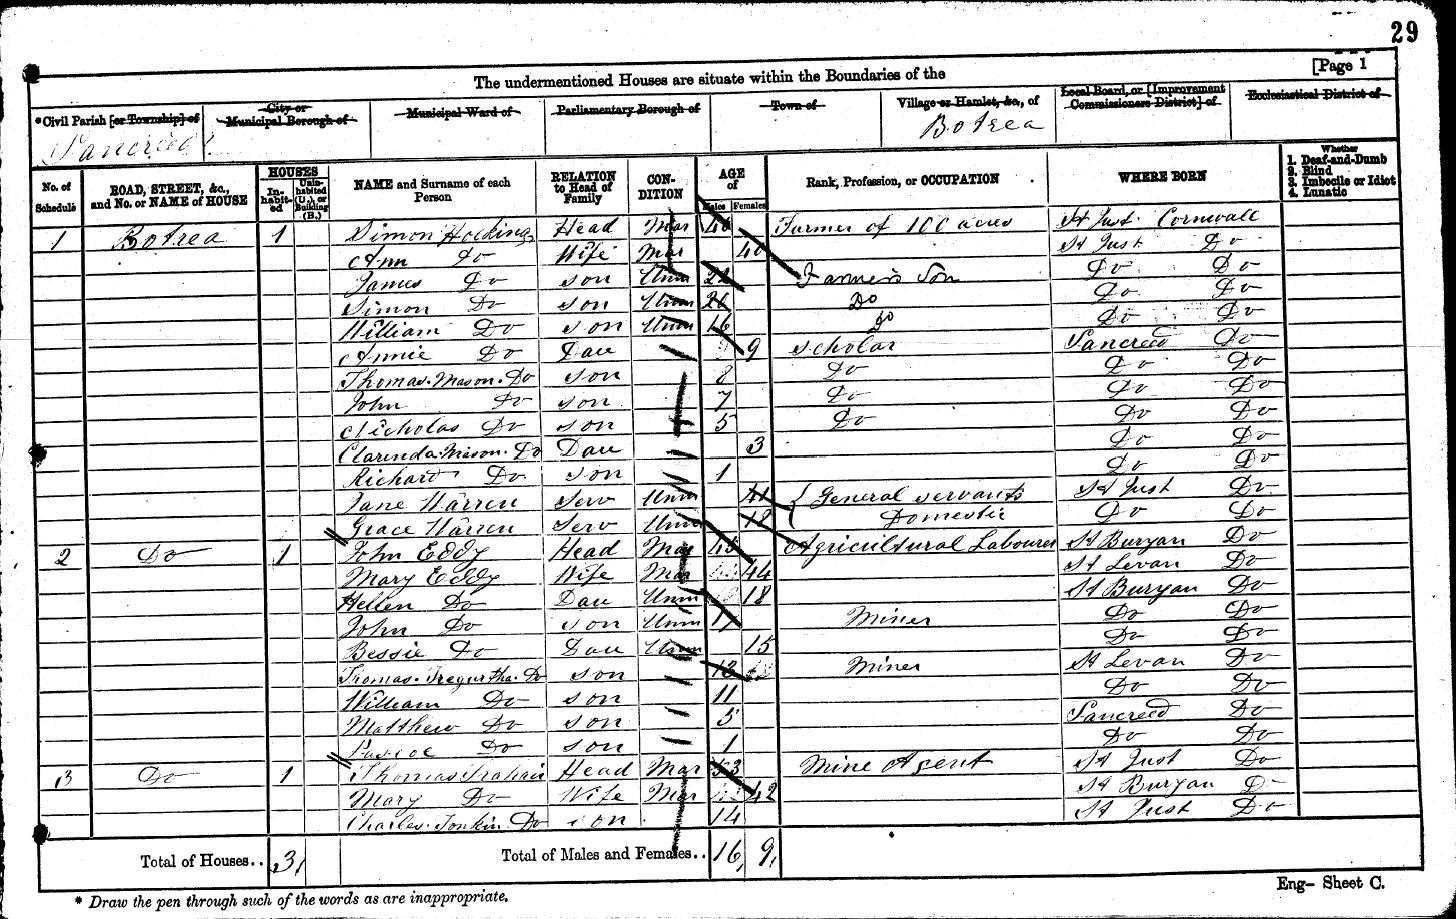 29
The undermentioned Houses are situate within the Boundaries of the [Page 1
*Civil Parish [or Township] of City or Municipal Borough of Municipal Ward of Parliamentary Borough of Town of Village or Hamlet, &c., of Local Board, or [Improvement Commissioners District] of Ecclesiastical District of
Sancreed Botrea
No. of Schedule ROAD, STREET, &c., and No. or NAME of HOUSE HOUSES In-habit-ed Unin-habited (U.), or Building (B.) NAME and Surname of each Person RELATION to Head of Family CON-DITION AGE of Males Females Rank, Profession, or OCCUPATION WHERE BORN Whether 1. Deaf-and-Dumb 2. Blind 3. Imbecile or Idiot 4. Lunatic
1 Botrea 1 Simon Hocking Head Mar 46 Farmer of 100 acres St Just Cornwall
Ann Do Wife Mar 40 St Just Do
James Do son Unm Farmer's Son Do Do
Simon Do son Unm Do Do Do
William Do son Unm 16 Do Do Do
Annie Do Dau 9 Scholar Sancreed Do
Thomas. Mason. Do son 8 Do Do Do
John Do son 7 Do Do Do
Nicholas Do son 5 Do Do Do
Clarinda. Mason. Do Dau 3 Do Do
Richard Do son 1 Do Do
Jane Warren Serv Unm { General servants St Just Do
Grace Warren Serv Unm 18 Domestic Do Do
2 Do 1 John Eddy Head Mar 45 Agricultural Labourer St Buryan Do
Mary Eddy Wife Mar 44 St Levan Do
Hellen Do Dau Unm 18 St Buryan Do
John Do son Unm 17 Miner Do Do
Bessie Do Dau Unm 15 Do Do
Thomas. Tregurtha. Do son 13 Miner St Levan Do
William Do son 11 Do Do
Matthew Do son 5 Sancreed Do
Pascoe Do son 1 Do Do
3 Do 1 Thomas Trahair Head Mar 53 Mine Agent St Just Do
Mary Do Wife Mar 42 St Buryan Do
Charles. Tonkin. Do son 14 St Just Do
Total of Houses.. 3 Total of Males and Females.. 16 9
Eng- Sheet C.
* Draw the pen through such of the words as are inappropriate.